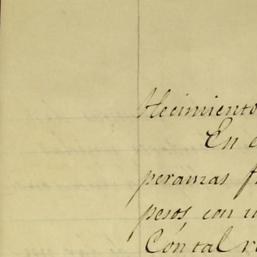 Hecimiento
En
peramas
pesos, con
Con tal